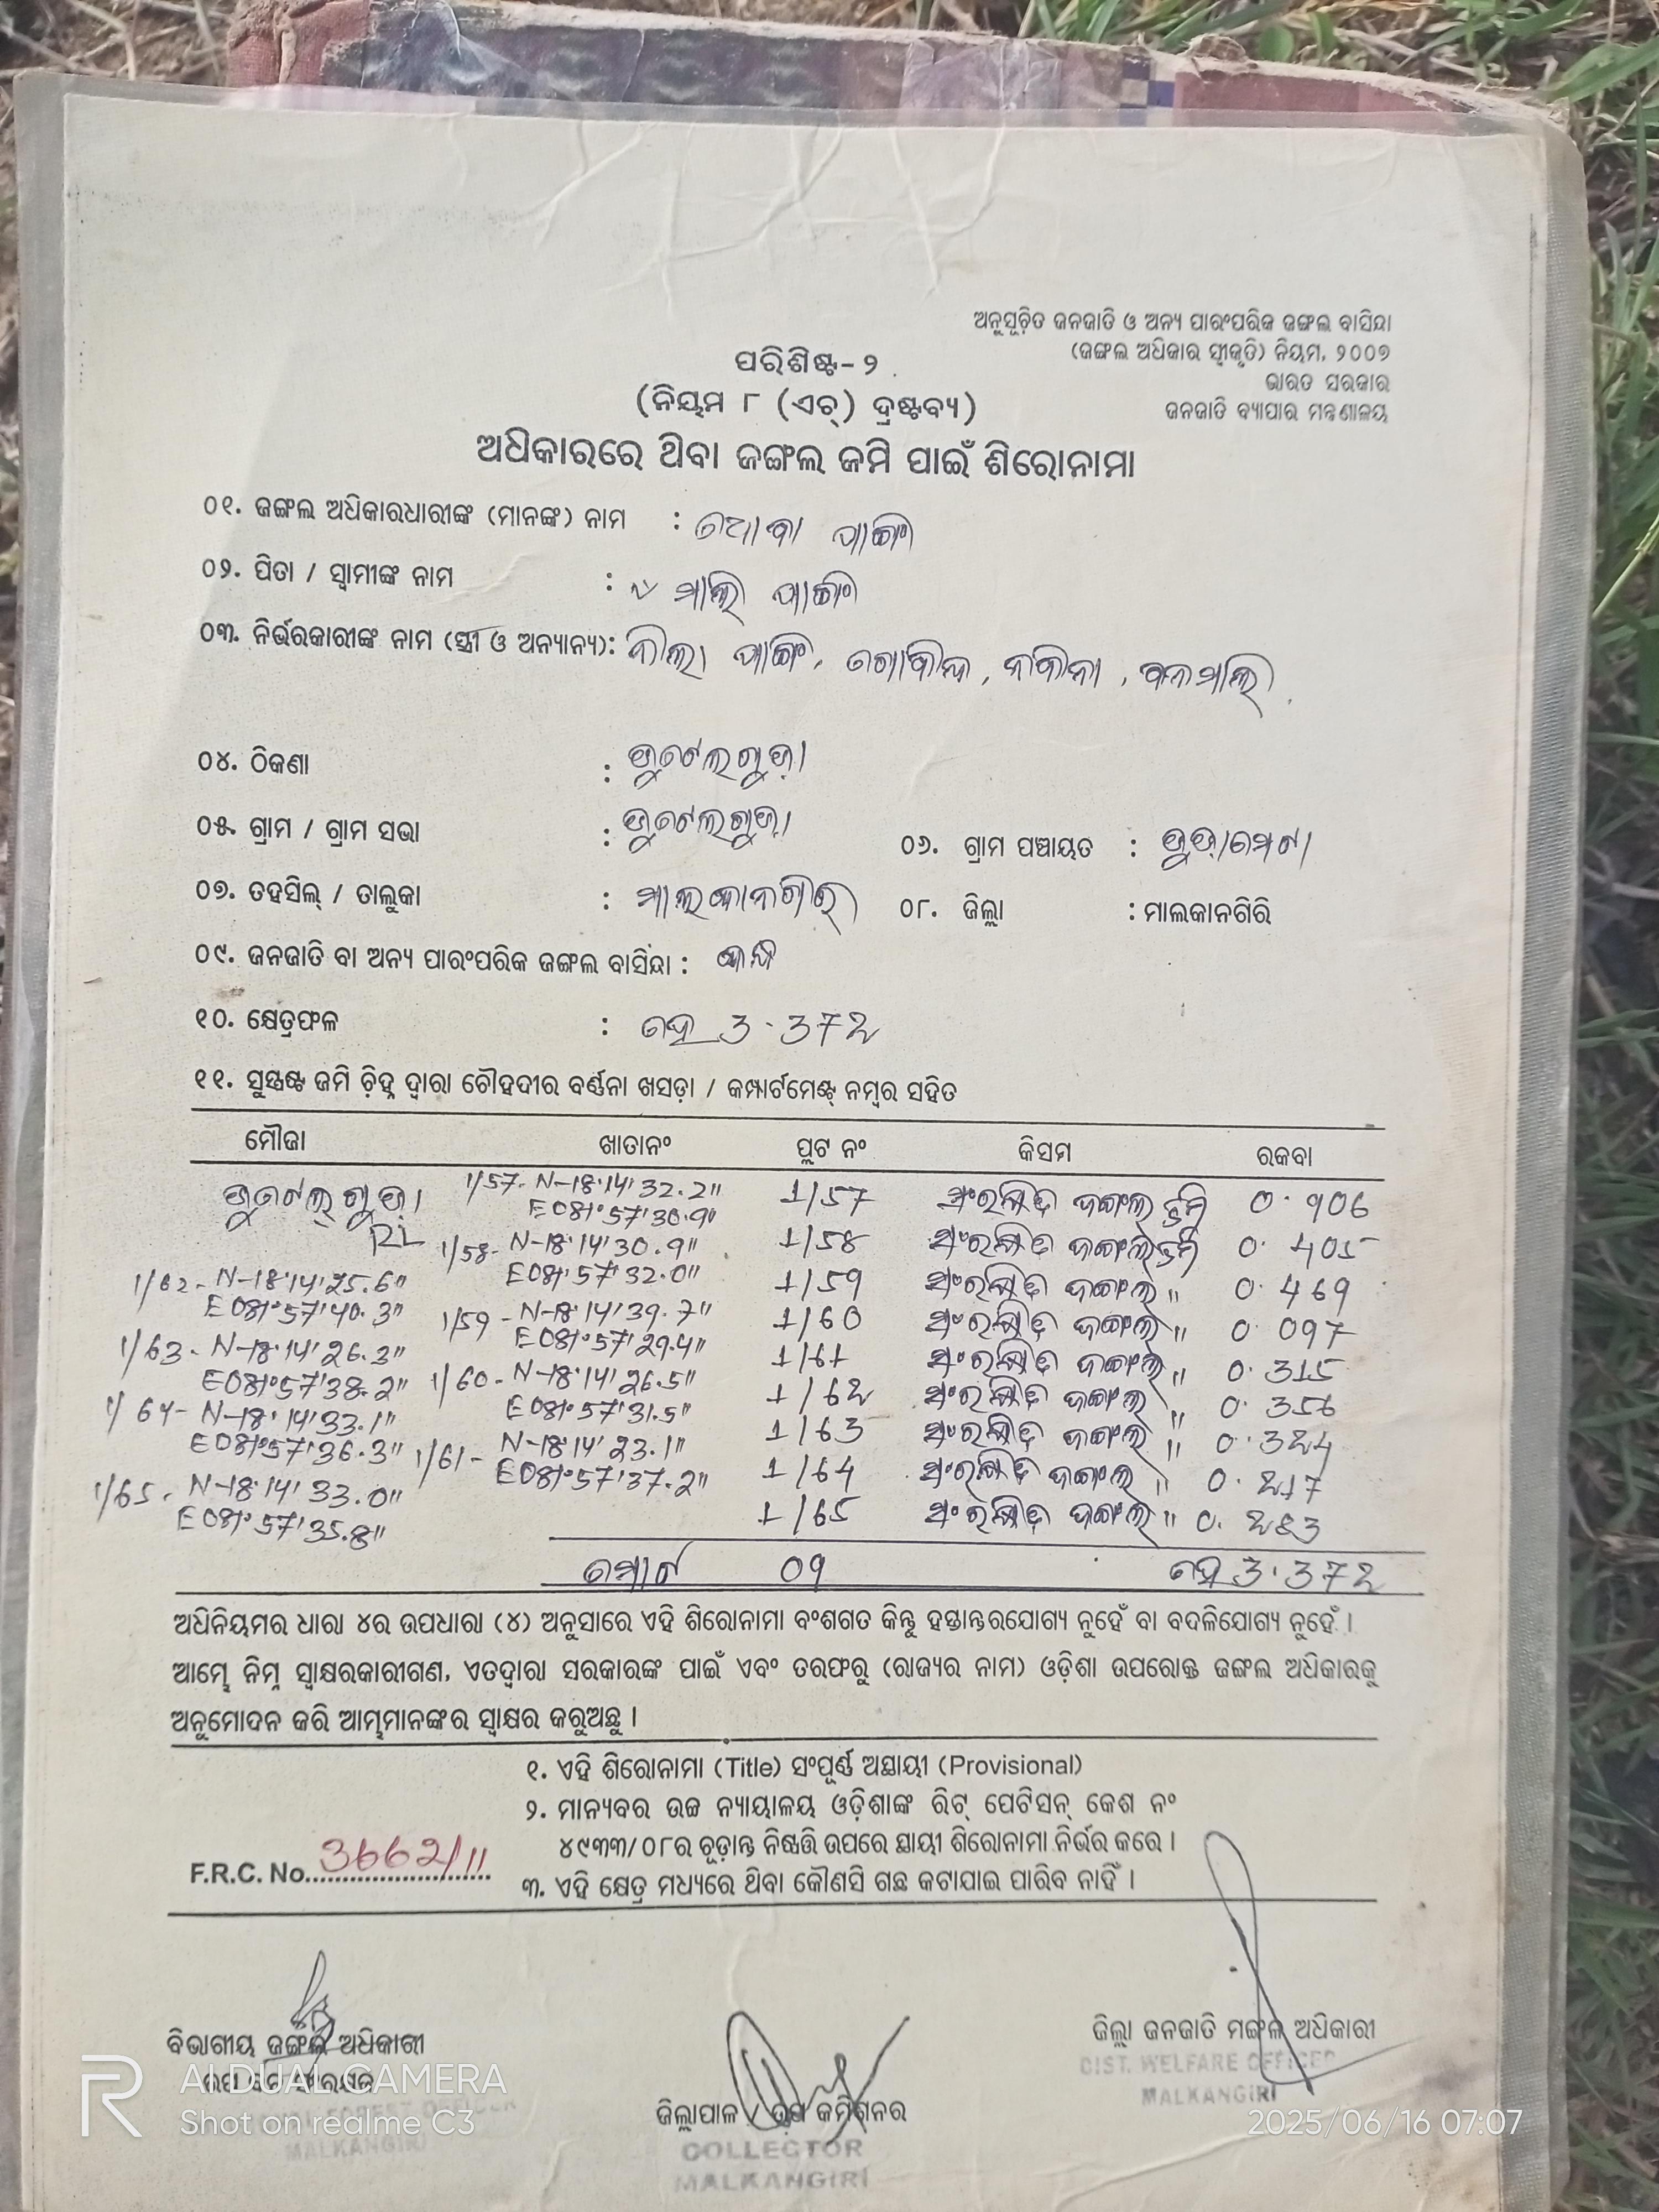 ଅନୁସୂଚିତ ଜନଜାତି ଓ ଅନ୍ୟ ପାରଂପରିକ ଜଙ୍ଗଲ ବାସିନ୍ଦା
(ଜଙ୍ଗଲ ଅଧିକାର ସ୍ୱୀକୃତି) ନିୟମ, ୨୦୦୭
ଭାରତ ସରକାର
ଜନଜାତି ବ୍ୟାପାର ମନ୍ତ୍ରଣାଳୟ
ପରିଶିଷ୍ଟ-୨
(ନିୟମ ୮ (ଏଚ୍) ଦ୍ରଷ୍ଟବ୍ୟ)
ଅଧିକାରରେ ଥିବା ଜଙ୍ଗଲ ଜମି ପାଇଁ ଶିରୋନାମା
୦୧. ଜଙ୍ଗଲ ଅଧିକାରଧାରୀଙ୍କ (ମାନଙ୍କ) ନାମ :
୦୨. ପିତା / ସ୍ୱାମୀଙ୍କ ନାମ : ମାଲି
୦୩. ନିର୍ଭରକାରୀଙ୍କ ନାମ (ସ୍ତ୍ରୀ ଓ ଅନ୍ୟାନ୍ୟ): ଗୋବିନ୍ଦ, ବନମାଲି
୦୪. ଠିକଣା :
୦୫. ଗ୍ରାମ / ଗ୍ରାମ ସଭା : ୦୬. ଗ୍ରାମ ପଞ୍ଚାୟତ :
୦୭. ତହସିଲ୍ / ତାଲୁକା : ମାଲକାନଗିରି ୦୮. ଜିଲ୍ଲା : ମାଲକାନଗିରି
୦୯. ଜନଜାତି ବା ଅନ୍ୟ ପାରଂପରିକ ଜଙ୍ଗଲ ବାସିନ୍ଦା :
୧୦. କ୍ଷେତ୍ରଫଳ : ହେ 3.372
୧୧. ସୁସ୍ପଷ୍ଟ ଜମି ଚିହ୍ନ ଦ୍ୱାରା ଚୌହଦୀର ବର୍ଣ୍ଣନା ଖସଡ଼ା / କମ୍ପାର୍ଟମେଣ୍ଟ୍ ନମ୍ବର ସହିତ
ମୌଜା ଖାତାନଂ ପ୍ଲଟ ନଂ କିସମ ରକବା
1/57- N-18°14'32.2" 1/57 ସଂରକ୍ଷିତ ଜଙ୍ଗଲ ଭୂମି 0.906
E081°57'30.9"
RL 1/58- N-18°14'30.9" 1/58 ସଂରକ୍ଷିତ ଜଙ୍ଗଲ ଭୂମି 0.405
E081°57'32.0"
1/62- N-18°14'25.6" 1/59 ସଂରକ୍ଷିତ ଜଙ୍ଗଲ " 0.469
E081°57'40.3" 1/59- N-18°14'39.7" 1/60 ସଂରକ୍ଷିତ ଜଙ୍ଗଲ " 0.097
E081°57'29.4"
1/63- N-18°14'26.3" 1/61 ସଂରକ୍ଷିତ ଜଙ୍ଗଲ " 0.315
E081°57'38.2" 1/60- N-18°14'26.5" 1/62 ସଂରକ୍ଷିତ ଜଙ୍ଗଲ " 0.356
E081°57'31.5"
1/64- N-18°14'33.1" 1/63 ସଂରକ୍ଷିତ ଜଙ୍ଗଲ " 0.324
E081°57'36.3" 1/61- N-18°14'23.1" 1/64 ସଂରକ୍ଷିତ ଜଙ୍ଗଲ " 0.217
E081°57'37.2"
1/65- N-18°14'33.0" 1/65 ସଂରକ୍ଷିତ ଜଙ୍ଗଲ " 0.283
E081°57'35.8"
ମୋଟ 09 ହେ 3.372
ଅଧିନିୟମର ଧାରା ୪ର ଉପଧାରା (୪) ଅନୁସାରେ ଏହି ଶିରୋନାମା ବଂଶଗତ କିନ୍ତୁ ହସ୍ତାନ୍ତରଯୋଗ୍ୟ ନୁହେଁ ବା ବଦଳିଯୋଗ୍ୟ ନୁହେଁ ।
ଆମ୍ଭେ ନିମ୍ନ ସ୍ୱାକ୍ଷରକାରୀଗଣ, ଏତଦ୍ୱାରା ସରକାରଙ୍କ ପାଇଁ ଏବଂ ତରଫରୁ (ରାଜ୍ୟର ନାମ) ଓଡ଼ିଶା ଉପରୋକ୍ତ ଜଙ୍ଗଲ ଅଧିକାରକୁ
ଅନୁମୋଦନ କରି ଆମ୍ଭମାନଙ୍କର ସ୍ୱାକ୍ଷର କରୁଅଛୁ ।
୧. ଏହି ଶିରୋନାମା (Title) ସଂପୂର୍ଣ୍ଣ ଅସ୍ଥାୟୀ (Provisional)
୨. ମାନ୍ୟବର ଉଚ୍ଚ ନ୍ୟାୟାଳୟ ଓଡ଼ିଶାଙ୍କ ରିଟ୍ ପେଟିସନ୍ କେଶ ନଂ
୪୯୩୩/୦୮ର ଚୂଡ଼ାନ୍ତ ନିଷ୍ପତ୍ତି ଉପରେ ସ୍ଥାୟୀ ଶିରୋନାମା ନିର୍ଭର କରେ ।
F.R.C. No. 3662/11
୩. ଏହି କ୍ଷେତ୍ର ମଧ୍ୟରେ ଥିବା କୌଣସି ଗଛ କଟାଯାଇ ପାରିବ ନାହିଁ ।
ବିଭାଗୀୟ ଜଙ୍ଗଲ ଅଧିକାରୀ
ଜିଲ୍ଲା ଜନଜାତି ମଙ୍ଗଳ ଅଧିକାରୀ
DIST. WELFARE OFFICER
MALKANGIRI
ଜିଲ୍ଲାପାଳ / ଉପ କମିଶନର
COLLECTOR
MALKANGIRI
MALKANGIRI
AI DUAL CAMERA
Shot on realme C3
2025/06/16 07:07